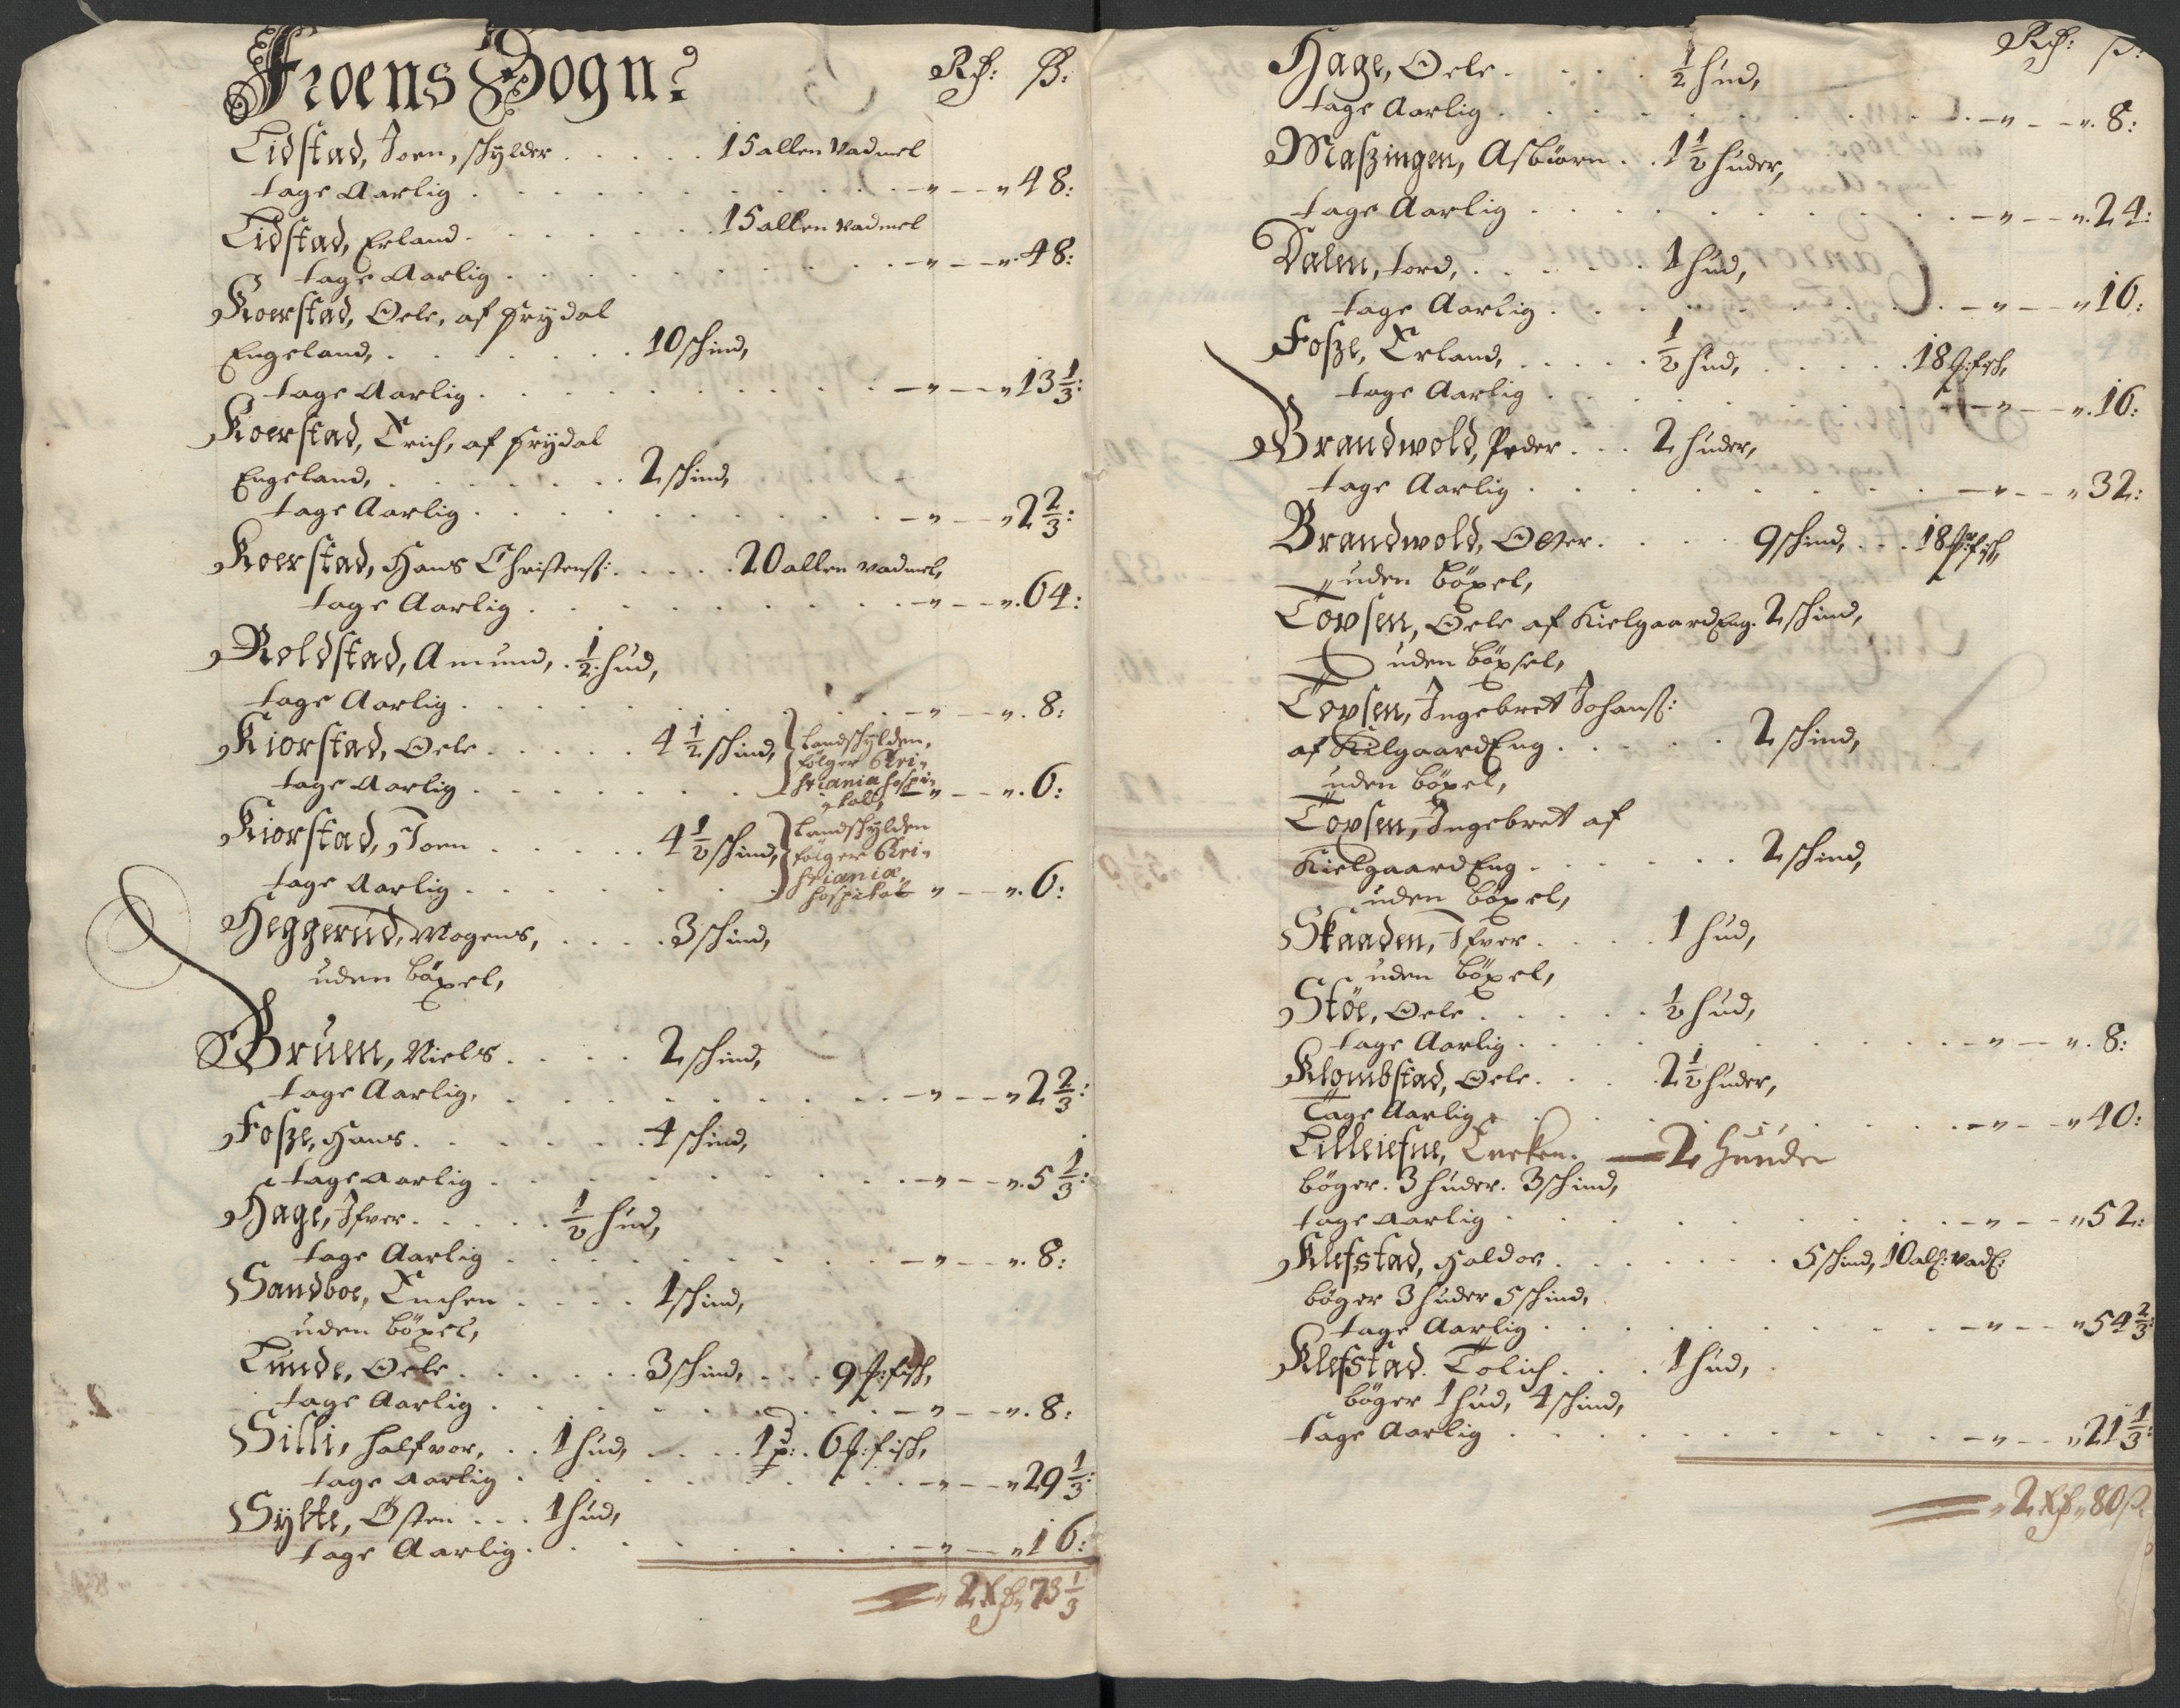 Froens Sogn:
Rd: ß:
Lidstad, Joen, schylder . . . . . 15 allen vadmel
tage Aarlig . . . . . — " — " 48:
Lidstad, Erland . . . . . 15 allen vadmel
tage Aarlig . . . . . — " — " 48:
Koerstad, Oele, af Frydal
Engeland, . . . . . 10 schind,
tage Aarlig . . . . . — " — " 13 1/3:
Koerstad, Erich, af Frydal
Engeland, . . . . . 2 schind,
tage Aarlig . . . . . — " — " 2 2/3:
Koerstad, Hans Christenß: . . . . 20 allen vadmel,
tage Aarlig . . . . . — " — " 64:
Roldstad, Amund, . 1/2 hud,
tage Aarlig . . . . . — " — " 8:
Kiorstad, Oele . . . . . 4 1/2 schind, Landschylden,
følger Chri-
stiania hospi-
tall,
tage Aarlig . . . . . — " — " 6:
Kiorstad, Joen . . . . . 4 1/2 schind, Landschylden
følger Chri-
stianiæ
hospital
tage Aarlig . . . . . " — " 6:
Heggerud, Mogens, . . . . 3 schind,
uden böxel,
Bruun, Niels . . . . 2 schind,
tage Aarlig, . . . . . — " — " 2 2/3:
Fosze, Hans . . . . . 4 schind,
tage Aarlig . . . . . — " — " 5 1/3:
Hage, Ifver . . . . . 1/2 hud,
tage Aarlig . . . . . — " — " 8:
Sandboe, Enchen . . . . 1 schind,
uden böxel,
Lunde, Oele . . . . . 3 schind, . . . 9 ℔: fisch,
tage Aarlig . . . . . — " — " 8:
Silli, Halfvor, . . 1 hud, . . . . 1 p: . 6 ℔: fisch,
tage Aarlig . . . . . — " — " 29 1/3:
Sylte, Östen . . . 1 hud,
tage Aarlig . . . . . — " — " 16:
" 2 Rd " 73 1/3
Rd: ß:
Hage, Oele . . . . . 1/2 hud,
tage Aarlig . . . . . — " — " 8:
Maszingen, Asbiörn . . 1 1/2 huder,
tage Aarlig . . . . . — " — " 24:
Dalen, tord, . . . . . 1 hud,
tage Aarlig . . . . . — " — " 16:
Fosze, Erland, . . . . . 1/2 hud, . . . . . 18 ℔: fisch,
tage Aarlig . . . . . — " — " 16:
Brandwold, Peder . . . 2 huder,
tage Aarlig . . . . . — " — " 32:
Brandwold, Olster . . . . 9 schind, . . 18 ℔: fisch,
uden böxel,
Tovsen, Oele af Kielgaard Eng. 2 schind,
uden böxsel,
Tovsen, Ingebret Johanß:
af Kilgaard Eng . . . . . 2 schind,
uden böxel,
Tovsen, Ingebret af
Kielgaard Eng . . . . . 2 schind,
uden böxel,
Skaaden, Ifver . . . . 1 hud,
uden böxel,
Stöe, Oele . . . . . 1/2 hud,
tage Aarlig . . . . . — " — " 8:
Klombstad, Oele . . . . 2 1/2 huder,
Tage Aarlig . . . . . — " — " 40:
Lilleiefne, Encken. — 2 Hunder
böger. 3 huder. 3 schind,
tage Aarlig . . . . . — " — " 52:
Klefstad, Haldor . . . . . 5 schind, 10 all: vad:
böger 3 huder 5 schind,
tage Aarlig . . . . . — " — " 54 2/3:
Klefstad. Tolich . . . 1 hud,
böger 1 hud, 4 schind,
tage Aarlig . . . . . — " — " 21 1/3:
" 2 Rd " 80 ß